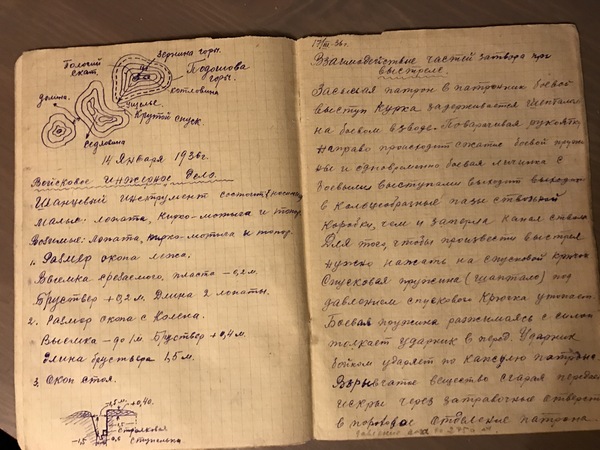 Вершина горы.
Пологий
скат.
Подошва
горы.
Котловина
Ущелье
Крутой спуск
долина
Седловина
14 Января 1936г.
Войсковое Инженое Дело.
Шанцевый инструмент состоит (носимый
Малые: лопата, кирко-мотыга и топор.
Возимые: Лопата, кирко-мотыга и топор.
1. Размер окопа лежа.
Выемка срезаемого, пласта – 0,2 м.
Бруствер + 0,2 м. Длина 2 лопаты.
2. Размер окопа с колена.
Выемка – до 1м Бруствер + 0,4 м.
Длина бруствера 1,5 м.
3. Окоп стоя.
+0,40.
Стрелковая
ступенька
17/III-36г.
Взаимодействие частей затвора при
выстреле.
патрон в патронник боевой
выступ курка задерживается шепталом
на боевом взводе. Поворачивая рукоятку
направо происходит сжатие боевой пружи
ны и одновременно боевая личинка с
боевыми выступами выходит
в кольцеобразные пазы ствольной
коробки, чем и заперла канал ствола
Для того, чтобы произвести выстрел
нужно нажать на спусковой крючок
Спусковая пружина (шаптало) под
давлением спускового крючка
Боевая пружина разжимаясь с силой
толкает ударник в перед. Ударник
бойком ударяет по капсулю патрона.
Взрывчатое вещество сгорая передает
искры через затравочные отверст
в пороховое отделение патрона